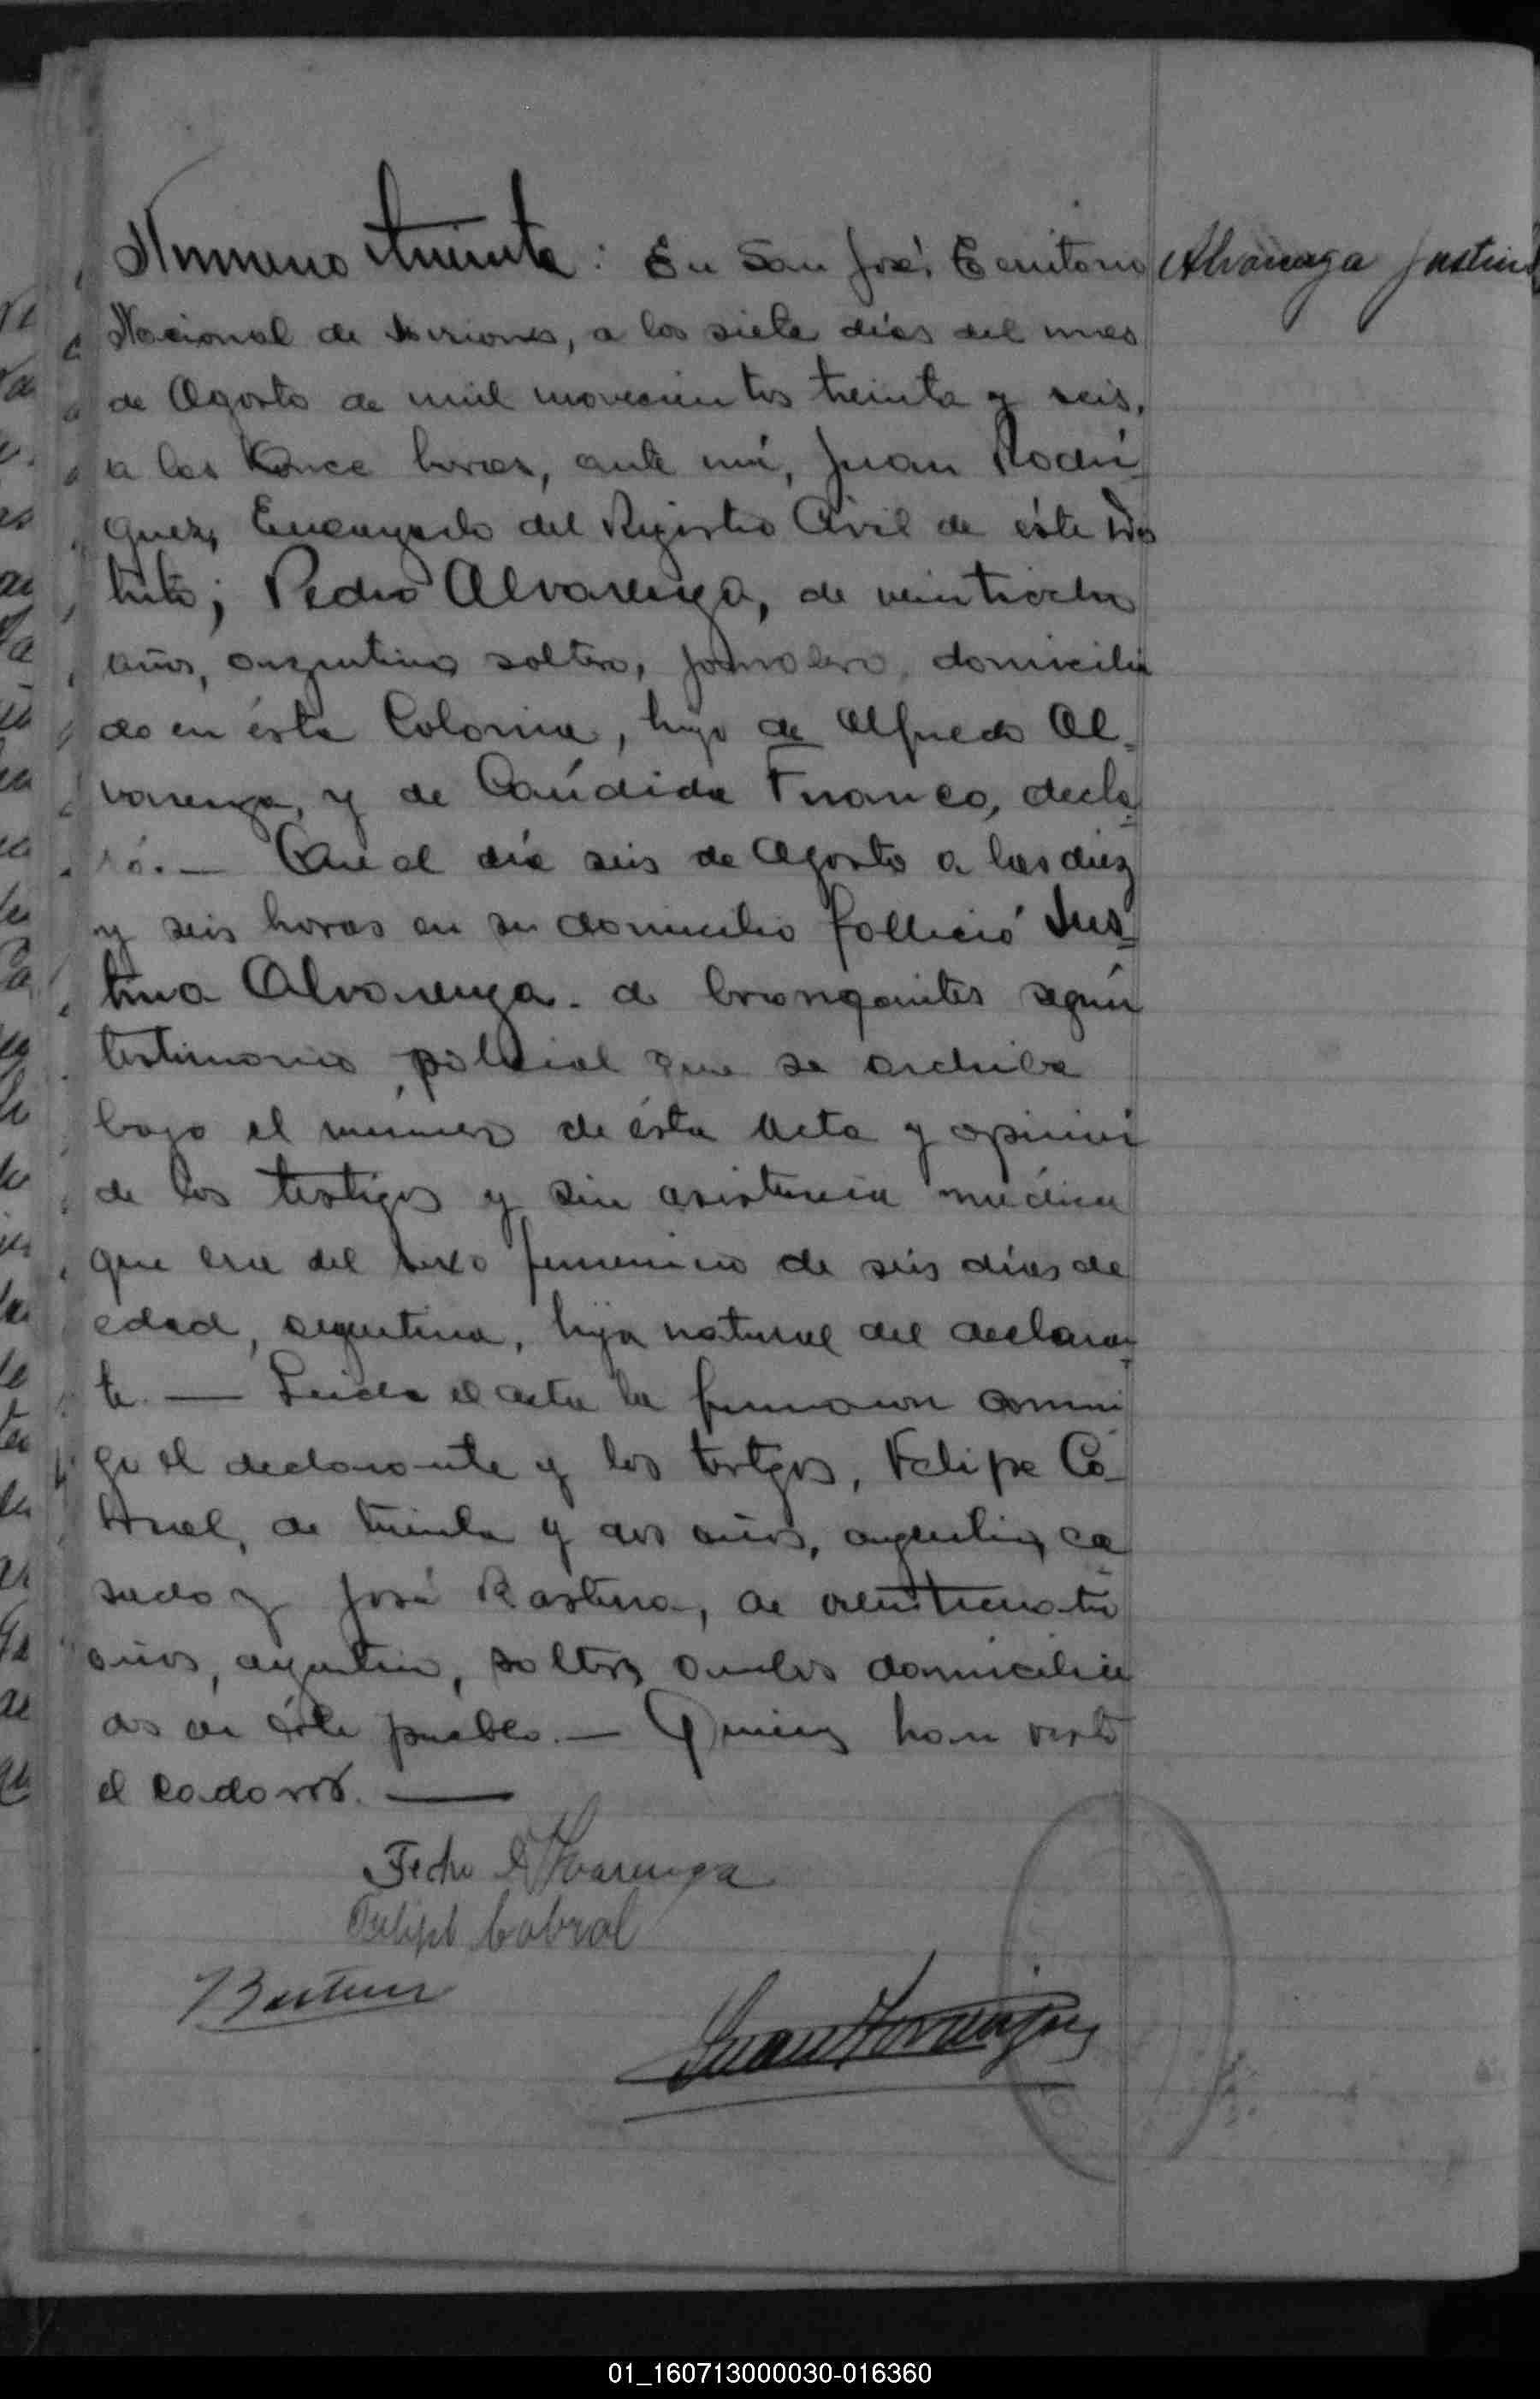 Numero treinta: En San José, Territorio
Alvarenga Justina
Nacional de Misiones, a los siete días del mes
de Agosto de mil novecientos treinta y seis,
a las once horas, ante mí, Juan Rodrí
guez, Encargado del Registro Civil de éste Dis
trito; Pedro Alvarenga, de veintiocho
años, argentino soltero, jornalero, domicilia
do en ésta Colonia, hijo de Alfredo Al-
varenga, y de Caúdida Franco, decla-
ró.— Que el día seis de Agosto a las diez
y seis horas en su domicilio falleció Jus-
tina Alvarenga. de bronquitis según
testimonio policial que se archiba
bajo el número de ésta Acta y opinión
de los testigos y sin asistencia médica
que era del sexo femenino de seis días de
edad, argentina, hija natural del declaran-
te. — Leida el acta la firmaron conmi
go el declarante y los testgos, Felipe Ca-
bral, de treinta y dos años, argentino, ca
sado y José Bastera, de
años, argentino, soltero, ambos domicilia
dos en éste pueblo.— Quienes han visto
el cadaver. —
Pedro Alvarenga
Felipe Cabral
Juan Rodriguez
01_160713000030-016360